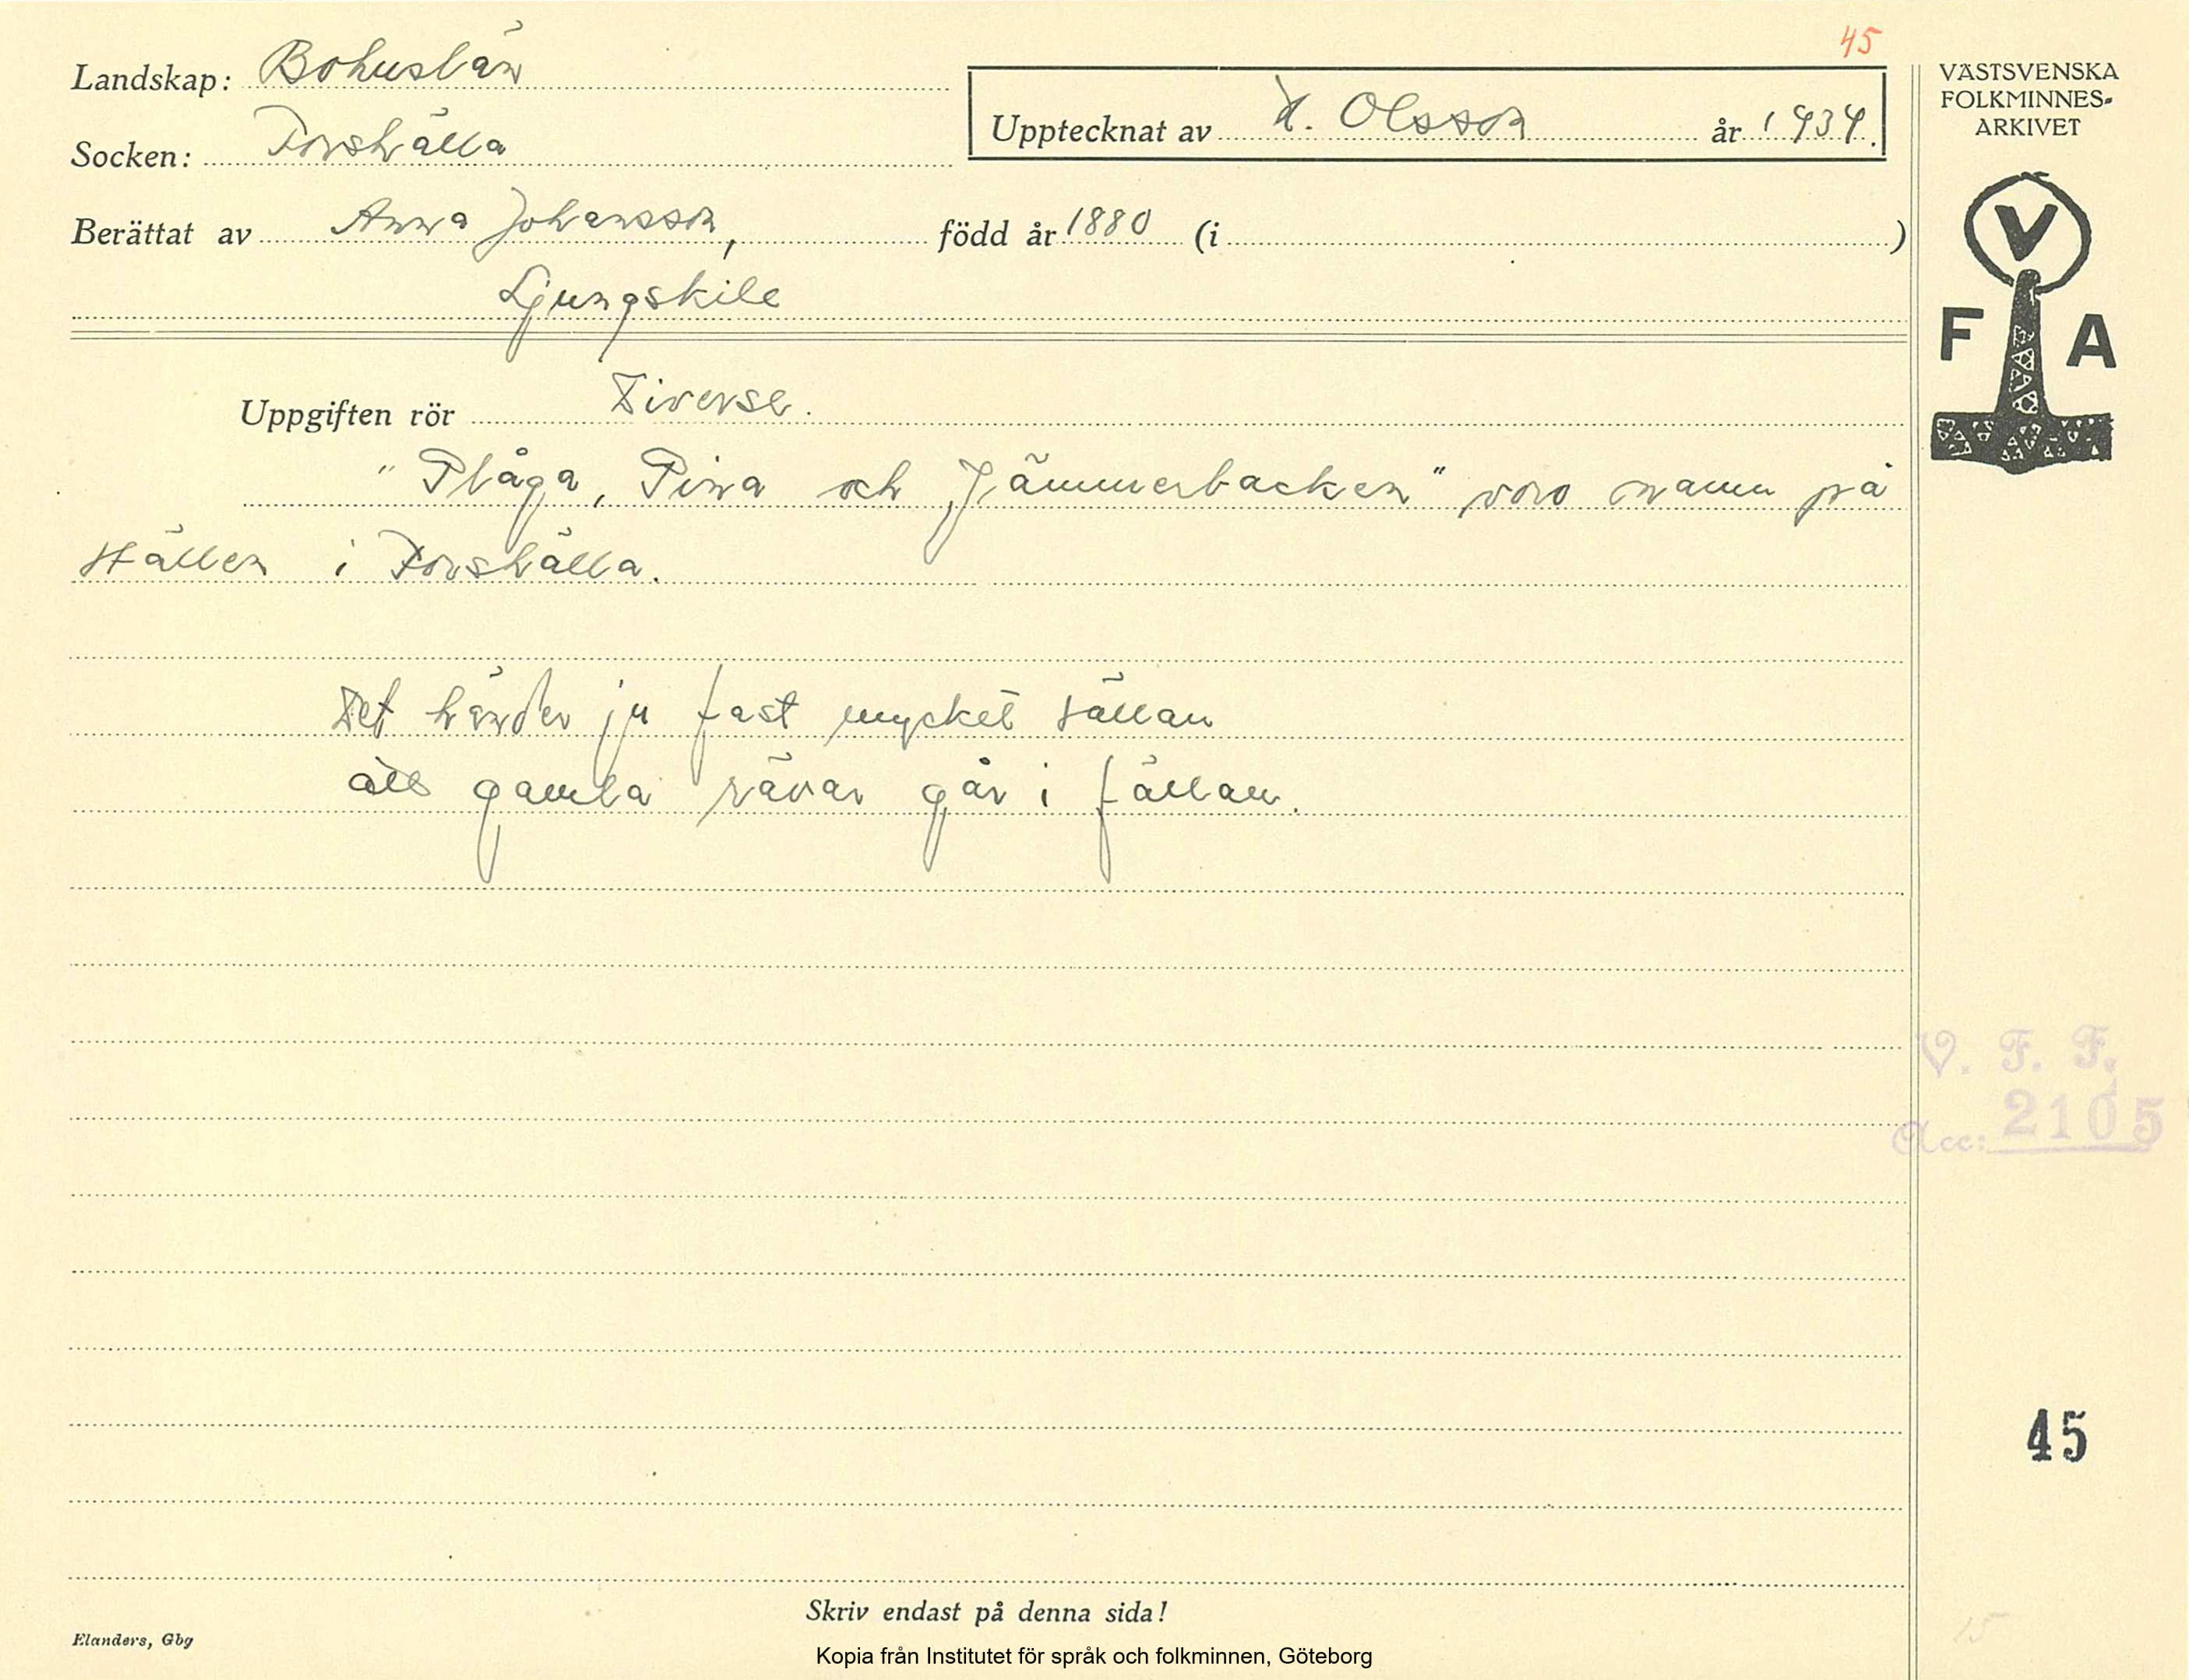 45
Landskap: Bohuslän
Socken: Forshälla
Upptecknat av H. Olsson år 1934.
Berättat av Anna Johansson, född år 1880 (i )
Ljungskile
Uppgiften rör Diverse.
"Plåga, Pina och Jämmerbacken" voro namn på
ställen i Forshälla.
Det händer ju fast mycket sällan
att gamla rävar går i fällan.
VÄSTSVENSKA
FOLKMINNES-
ARKIVET
V
F A
V. F. F.
Acc: 2105
45
15
Skriv endast på denna sida!
Elanders, Gbg
Kopia från Institutet för språk och folkminnen, Göteborg